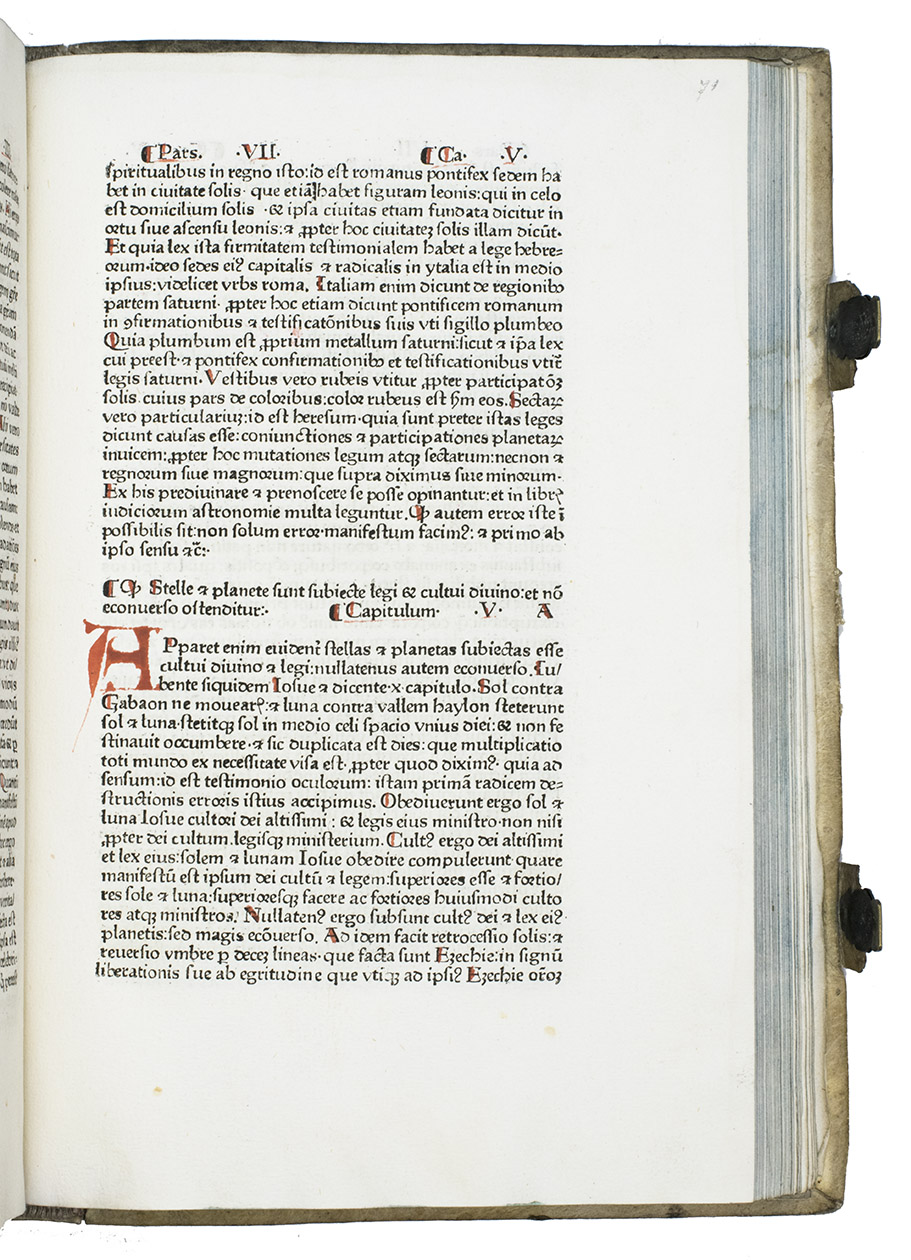 71
Pars. ·VII· Ca· ·V·
spiritualibus in regno isto:id est romanus pontifex sedem ha
bet in ciuitate solis· que etiã habet figuram leonis:qui in celo
est domicilium solis ·& ipsa ciuitas etiam fundata dicitur in
ortu siue ascensu leonis:⁊ ꝓpter hoc ciuitateʒ solis illam dicũt·
Et quia lex ista firmitatem testimonialem habet a lege hebre⸗
orum·ideo sedes eiꝰ capitalis ⁊ radicalis in ytalia est in medio
ipsius:videlicet vrbs roma. Italiam enim dicunt de regionibꝰ
partem saturni· ꝓpter hoc etiam dicunt pontificem romanum
in ꝯfirmationibus ⁊ testificatõnibus suis vti sigillo plumbeo
Quia plumbum est ꝓprium metallum saturni:sicut ⁊ ip̃a lex
cui preest·⁊ pontifex confirmationibꝰ et testificationibus vtit̃
legis saturni· Vestibus vero rubeis vtitur ꝓpter participatõʒ
solis cuius pars de coloribus:color rubeus est ẜm eos. Sectaꝝ
vero particulariuʒ:id est heresum·quia sunt preter istas leges
dicunt causas esse:coniunctiones ⁊ participationes planetaꝝ
inuicem:ꝓpter hoc mutationes legum atqꝫ sectarum:necnon ⁊
regnorum siue magnorum:que supra diximus siue minorum·
Ex his prediuinare ⁊ prenoscere se posse opinantur:et in librꝭ
iudiciorum astronomie multa leguntur. Ꝙ autem error iste ĩ
possibilis sit:non solum error·manifestum facimꝰ: ⁊ primo ab
ipso sensu ⁊c̃:·
Ꝙ Stelle ⁊ planete sunt subiecte legi & cultui diuino:et nõ
econuerso ostenditur:· Capitulum· ·V· A
APparet enim euidenṫ stellas ⁊ planetas subiectas esse
cultui diuino ⁊ legi:nullatenus autem econuerso. Iu/
bente siquidem Iosue ⁊ dicente·x·capitulo. Sol contra
Gabaon ne mouearꝭ:⁊ luna contra vallem haylon steterunt
sol ⁊ luna·stetitqꝫ sol in medio celi spacio vnius diei:& non fe
stinauit occumbere·⁊ sic duplicata est dies: que multiplicatio
toti mundo ex necessitate visa est· ꝓpter quod diximꝰ· quia ad
sensum:id est testimonio oculorum: istam primã radicem de⸗
structionis erroris istius accipimus. Obediuerunt ergo sol ⁊
luna Iosue cultori dei altissimi : & legis eius ministro·non nisi
ꝓpter dei cultum·legisqꝫ ministerium. Cultꝰ ergo dei altissimi
et lex eius:solem ⁊ lunam Iosue obedire compulerunt quare
manifestũ est ipsum dei cultũ ⁊ legem:superiores esse ⁊ fortio/
res sole ⁊ luna:superioresqꝫ facere ac fortiores huiusmodi culto
res atqꝫ ministros. Nullatenꝰ ergo subsunt cultꝰ dei ⁊ lex eiꝰ
planetis:sed magis ecõuerso. Ad idem facit retrocessio solis:⁊
reuersio vmbre ꝑ deceʒ lineas·que facta sunt Eʒechie:in signũ
liberationis sue ab egritudine que vtiqꝫ ad ipsiꝰ Eʒechie or̃oʒ